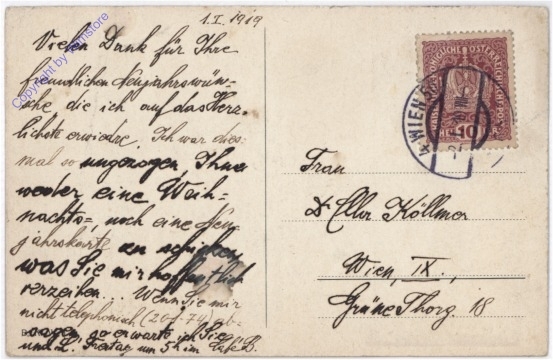 1. I. 1919
Vielen Dank für Ihre
freundlichen Neujahrswün-
sche die ich auf das Herz-
lichste erwiedre. Ich war dies-
mal so ungezogen, Ihnen
weder eine Weih-
nachts-, noch eine Neu-
jahrskarte zu schicken,
was Sie mir hoffentlich
verzeihen... Wenn Sie mir
nicht telephonisch (20-f-74) ab-
sagen, so erwarte ich Sie
und L. Freitag um 5h im
Copyright by ansichtskartenstore
WIEN
10
Frau
Dr Ella Köllmer
Wien, IX.,
Grüne Thorg. 18